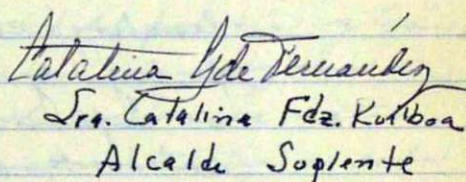 Catalina G de Fernandez
Sra. Catalina Fdz. Kuilboa
Alcalde Soplente